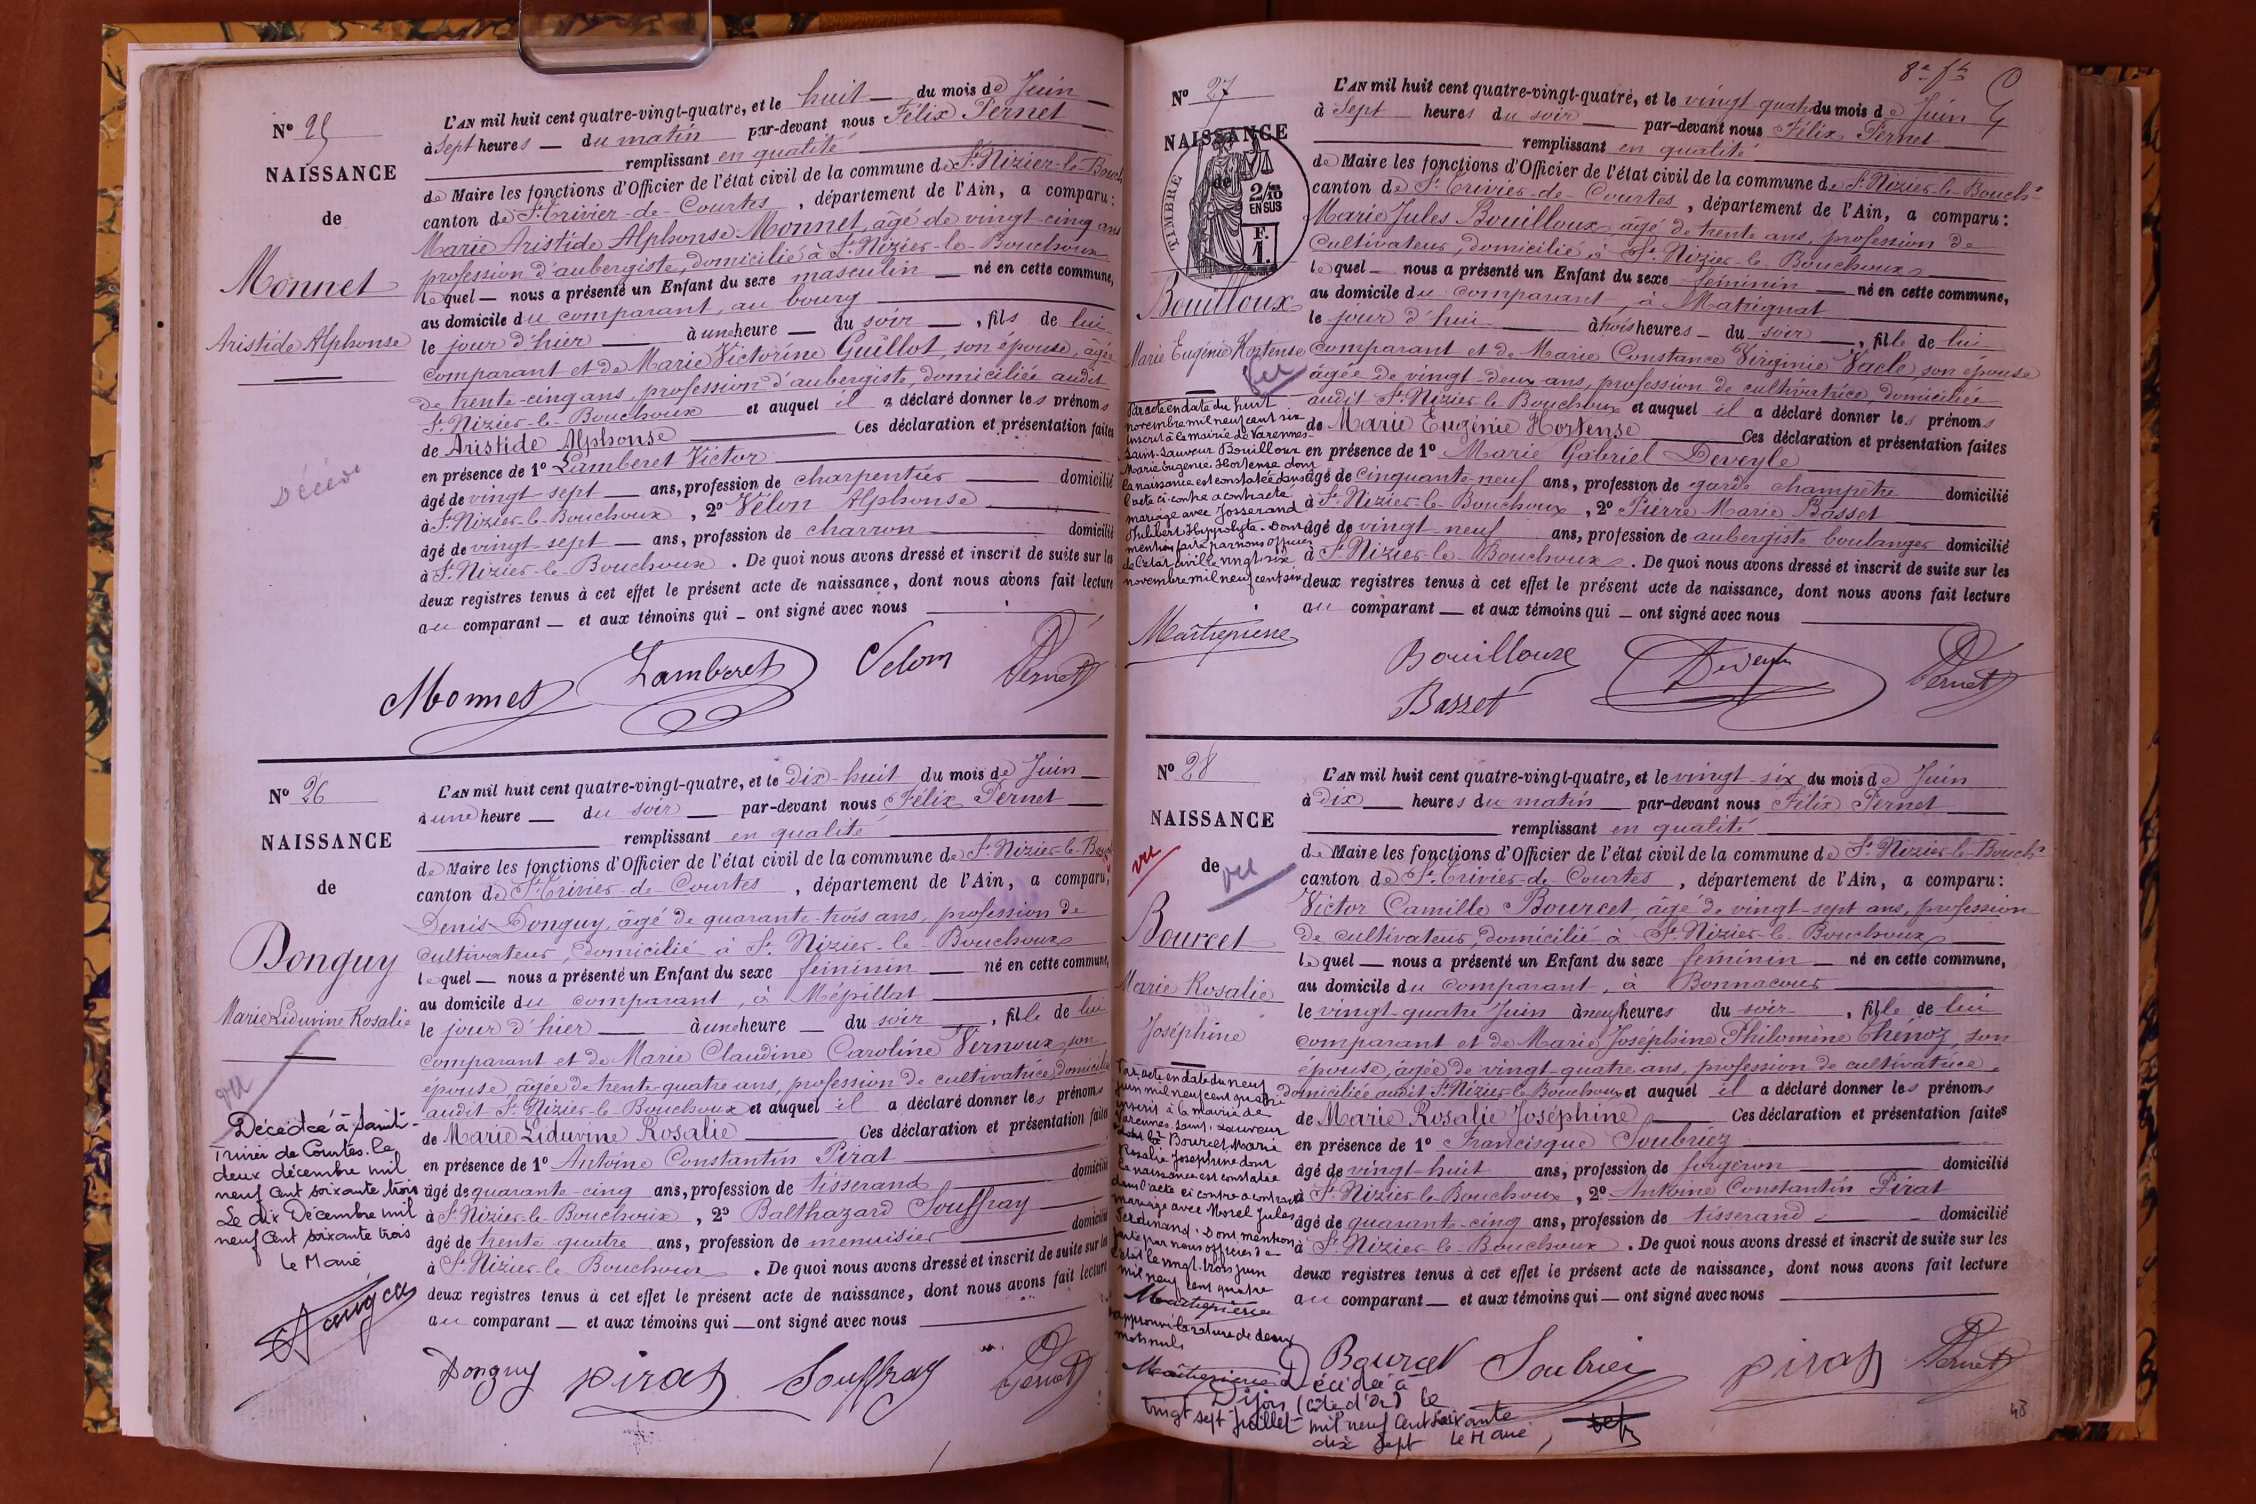 N° 25
NAISSANCE
de
Monnet
Aristide Alphonse
Décédé
L'AN mil huit cent quatre-vingt-quatre, et le huit du mois de Juin
à Sept heures du matin par-devant nous Félix Pernet
remplissant en qualité
de Maire les fonctions d'Officier de l'état civil de la commune de St Nizier-le-Bouch
canton de St Trivier-de-Courtes, département de l'Ain, a comparu:
Marie Aristide Alphonse Monnet, âgé de vingt-cinq ans
profession d'aubergiste, domicilié à St Nizier-le-Bouchoux
lequel nous a présenté un Enfant du sexe masculin né en cette commune,
au domicile du comparant, au bourg
le jour d'hier à une heure du soir, fils de lui
comparant et de Marie Victorine Guillot, son épouse, âgée
de trente-cinq ans, profession d'aubergiste, domiciliée audit
St Nizier-le-Bouchoux et auquel il a déclaré donner les prénoms
de Aristide Alphonse Ces déclaration et présentation faites
en présence de 1° Lamberet Victor
âgé de vingt sept ans, profession de charpentier domicilié
à St Nizier-le-Bouchoux, 2° Velon Alphonse
âgé de vingt-sept ans, profession de charron domicilié
à St Nizier-le-Bouchoux. De quoi nous avons dressé et inscrit de suite sur les
deux registres tenus à cet effet le présent acte de naissance, dont nous avons fait lecture
au comparant et aux témoins qui ont signé avec nous
Monnet Lamberet Velon Pernet
N° 26
NAISSANCE
de
Donguy
Marie Liduvine Rosalie
vu
Décédée à Saint-
Trivier de Courtes. le
deux décembre mil
neuf cent soixante trois
Le dix Décembre mil
neuf cent soixante trois
Le Maire
L'AN mil huit cent quatre-vingt-quatre, et le dix-huit du mois de Juin
à une heure du soir par-devant nous Félix Pernet
remplissant en qualité
de Maire les fonctions d'Officier de l'état civil de la commune de St Nizier-le-Bouch
canton de St Trivier-de-Courtes, département de l'Ain, a comparu:
Denis Donguy, âgé de quarante-trois ans, profession de
cultivateur, domicilié à St Nizier-le-Bouchoux
lequel nous a présenté un Enfant du sexe féminin né en cette commune,
au domicile du comparant, à Mépillat
le jour d'hier à une heure du soir, fille de lui
comparant et de Marie Claudine Caroline Vernoux, son
épouse, âgée de trente-quatre ans, profession de cultivatrice, domiciliée
audit St Nizier-le-Bouchoux et auquel il a déclaré donner les prénoms
de Marie Liduvine Rosalie Ces déclaration et présentation faites
en présence de 1° Antoine Constantin Pirat
âgé de quarante-cinq ans, profession de tisserand domicilié
à St Nizier-le-Bouchoux, 2° Balthazard Souffray
âgé de trente quatre ans, profession de menuisier domicilié
à St Nizier-le-Bouchoux. De quoi nous avons dressé et inscrit de suite sur les
deux registres tenus à cet effet le présent acte de naissance, dont nous avons fait lecture
au comparant et aux témoins qui ont signé avec nous
Donguy Pirat Souffray Pernet
N° 27
NAISSANCE
de
TIMBRE
2/10 EN SUS
F. 1.
Bouilloux
Marie Eugénie Hortense
vu
Par acte en date du huit
novembre mil neuf cent six
inscrit à la mairie de Varennes-
Saint-Sauveur Bouilloux
Marie Eugénie Hortense dont
la naissance est constatée dans
l'acte ci-contre a contracté
mariage avec Josserand
Philibert Hyppolyte. Dont
mention faite par nous officier
de l'état civil le vingt six
novembre mil neuf cent six
Maîtrepierre
8e ft
L'AN mil huit cent quatre-vingt-quatre, et le vingt-quatre du mois de Juin
à Sept heures du soir par-devant nous Félix Pernet
remplissant en qualité
de Maire les fonctions d'Officier de l'état civil de la commune de St Nizier-le-Bouchx
canton de St Trivier-de-Courtes, département de l'Ain, a comparu:
Marie Jules Bouilloux, âgé de trente ans, profession de
cultivateur, domicilié à St Nizier-le-Bouchoux
lequel nous a présenté un Enfant du sexe féminin né en cette commune,
au domicile du comparant, à Matrignat
le jour d'hui à trois heures du soir, fille de lui
comparant et de Marie Constance Virginie Vacle, son épouse
âgée de vingt-deux ans, profession de cultivatrice, domiciliée
audit St Nizier-le-Bouchoux et auquel il a déclaré donner les prénoms
de Marie Eugénie Hortense Ces déclaration et présentation faites
en présence de 1° Marie Gabriel Deveyle
âgé de cinquante-neuf ans, profession de garde champêtre domicilié
à St Nizier-le-Bouchoux, 2° Pierre Marie Basset
âgé de vingt-neuf ans, profession de aubergiste boulanger domicilié
à St Nizier-le-Bouchoux. De quoi nous avons dressé et inscrit de suite sur les
deux registres tenus à cet effet le présent acte de naissance, dont nous avons fait lecture
au comparant et aux témoins qui ont signé avec nous
Bouilloux Deveyle Pernet
Basset
N° 28
NAISSANCE
de
vu
vu
Bourcet
Marie Rosalie
Joséphine
Par acte en date du neuf
juin mil neuf cent quatre
inscrit à la mairie de
Varennes-Saint-Sauveur
Bourcet Marie
Rosalie Joséphine dont
la naissance est constatée
dans l'acte ci-contre a contracté
mariage avec Morel Jules
Ferdinand. Dont mention
faite par nous officier de
l'état le vingt-trois juin
mil neuf cent quatre
Maîtrepierre
approuvé la rature de deux
mots nuls
Maîtrepierre
Décédée à
Dijon (Côte d'Or) le
vingt sept Juillet mil neuf cent soixante
dix sept Le Maire,
L'AN mil huit cent quatre-vingt-quatre, et le vingt-six du mois de Juin
à dix heures du matin par-devant nous Félix Pernet
remplissant en qualité
de Maire les fonctions d'Officier de l'état civil de la commune de St Nizier-le-Bouchx
canton de St Trivier-de-Courtes, département de l'Ain, a comparu:
Victor Camille Bourcet, âgé de vingt-sept ans, profession
de cultivateur, domicilié à St Nizier-le-Bouchoux
lequel nous a présenté un Enfant du sexe féminin né en cette commune,
au domicile du comparant, à Bonnacour
le vingt-quatre Juin à neuf heures du soir, fille de lui
comparant et de Marie Joséphine Philomène Thénoz, son
épouse, âgée de vingt-quatre ans, profession de cultivatrice,
domiciliée audit St Nizier-le-Bouchoux et auquel il a déclaré donner les prénoms
de Marie Rosalie Joséphine Ces déclaration et présentation faites
en présence de 1° Francisque Soubriez
âgé de vingt-huit ans, profession de forgeron domicilié
à St Nizier-le-Bouchoux, 2° Antoine Constantin Pirat
âgé de quarante-cinq ans, profession de tisserand domicilié
à St Nizier-le-Bouchoux. De quoi nous avons dressé et inscrit de suite sur les
deux registres tenus à cet effet le présent acte de naissance, dont nous avons fait lecture
au comparant et aux témoins qui ont signé avec nous
Bourcet Soubriez Pirat Pernet
48